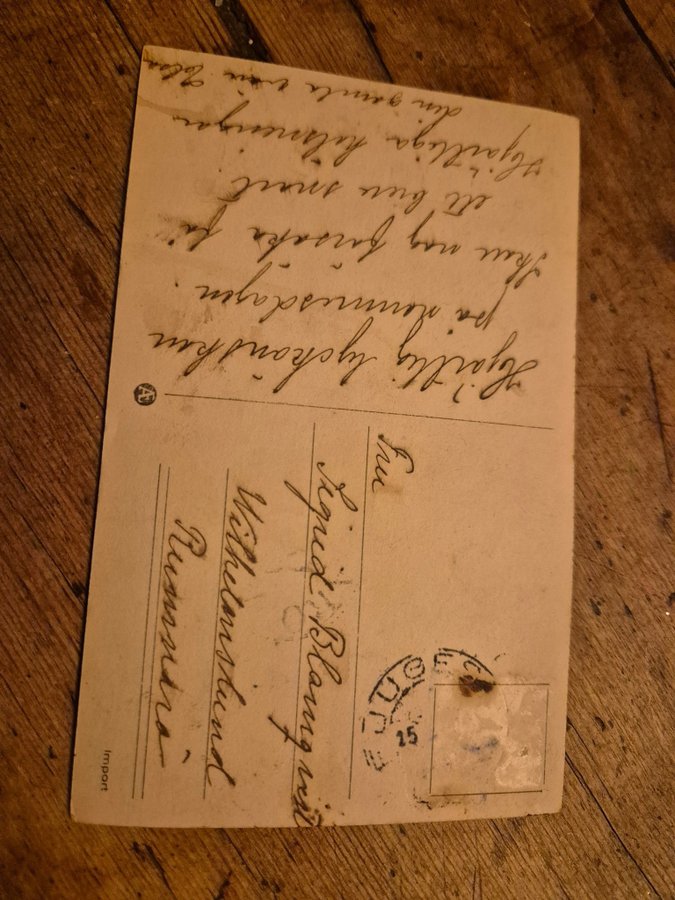 Hjärtlig lyckönskan
på namnesdagen.
nog försöka få
ett brev snart
Hjärtliga hälsningar
din gamla vän
Fru
Sigrid Blomqvist
Wilhelmslund
Runmarö
15
Import